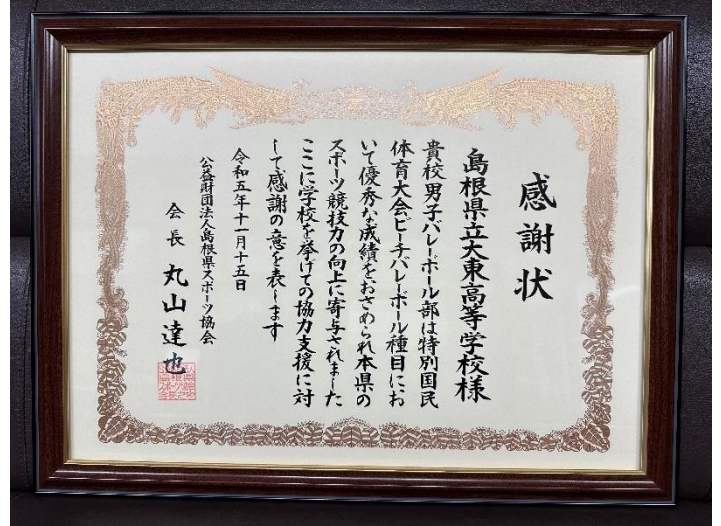 感謝状
島根県立大東高等学校様
貴校男子バレーボール部は特別国民
体育大会ビーチバレーボール種目にお
いて優秀な成績をおさめられ本県の
スポーツ競技力の向上に寄与されました
ここに学校を挙げての協力支援に対
して感謝の意を表します
令和五年十一月十五日
公益財団法人島根県スポーツ協会
会長 丸山達也